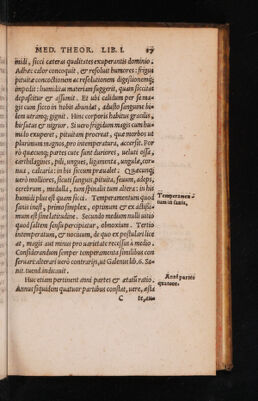 MED. THEOR. LIB. I. 17
midi, sicci cæteras qualitates exuperantis dominio.
Adhæc calor concoquit, & resoluit humores: frigus
pituitæ concoctionem ac resolutionem digestionemq;
impedit: humiditas materiam suggerit, quam siccitas
depascitur & assumit. Et ubi calidum per se
cum sicco in nobis abundat, adusto sanguine bi-
lem utramq; gignit. Hinc corporis habitus gracilis,
hirsutus & nigrior. Si uero frigidum magis cum hu-
mido exuperet, pituitam procreat, quæ morbos ut
plurimum magnos, pro intemperatura, accersit. Por-
rò quæcunq; partes cute sunt duriores, ueluti ossa,
carthilagines, pili, ungues, ligamenta, ungulæ, cor-
nua, calcaria: in his siccum præualet: Quæcunq;
uerò molliores, sicuti sanguis, pituita, seuum, adeps,
cerebrum, medulla, tum spinalis tum altera: in his
humidum plus quam siccum. Temperamentum quod
sanis inest, primo simplex, optimum & ad
um est similitudine. Secundo medium nulli uitio
quod sensu percipiatur, obnoxium. Tertio
intemperatum, & nocuum, de quo ex
at, magis aut minus pro uarietate recessus à medio.
Considerandum semper temperamenta similibus con
seruari: alterari uerò contrarijs, ut Galenus lib. 6. Sa-
nit. tuend. indicauit.
Temperamen-
tum in sanis.
Huc etiam pertinent anni partes & ætatū ratio.
Annus siquidem quatuor partibus constat, uere, æsta
Anni partes
quatuor.
C te, au-